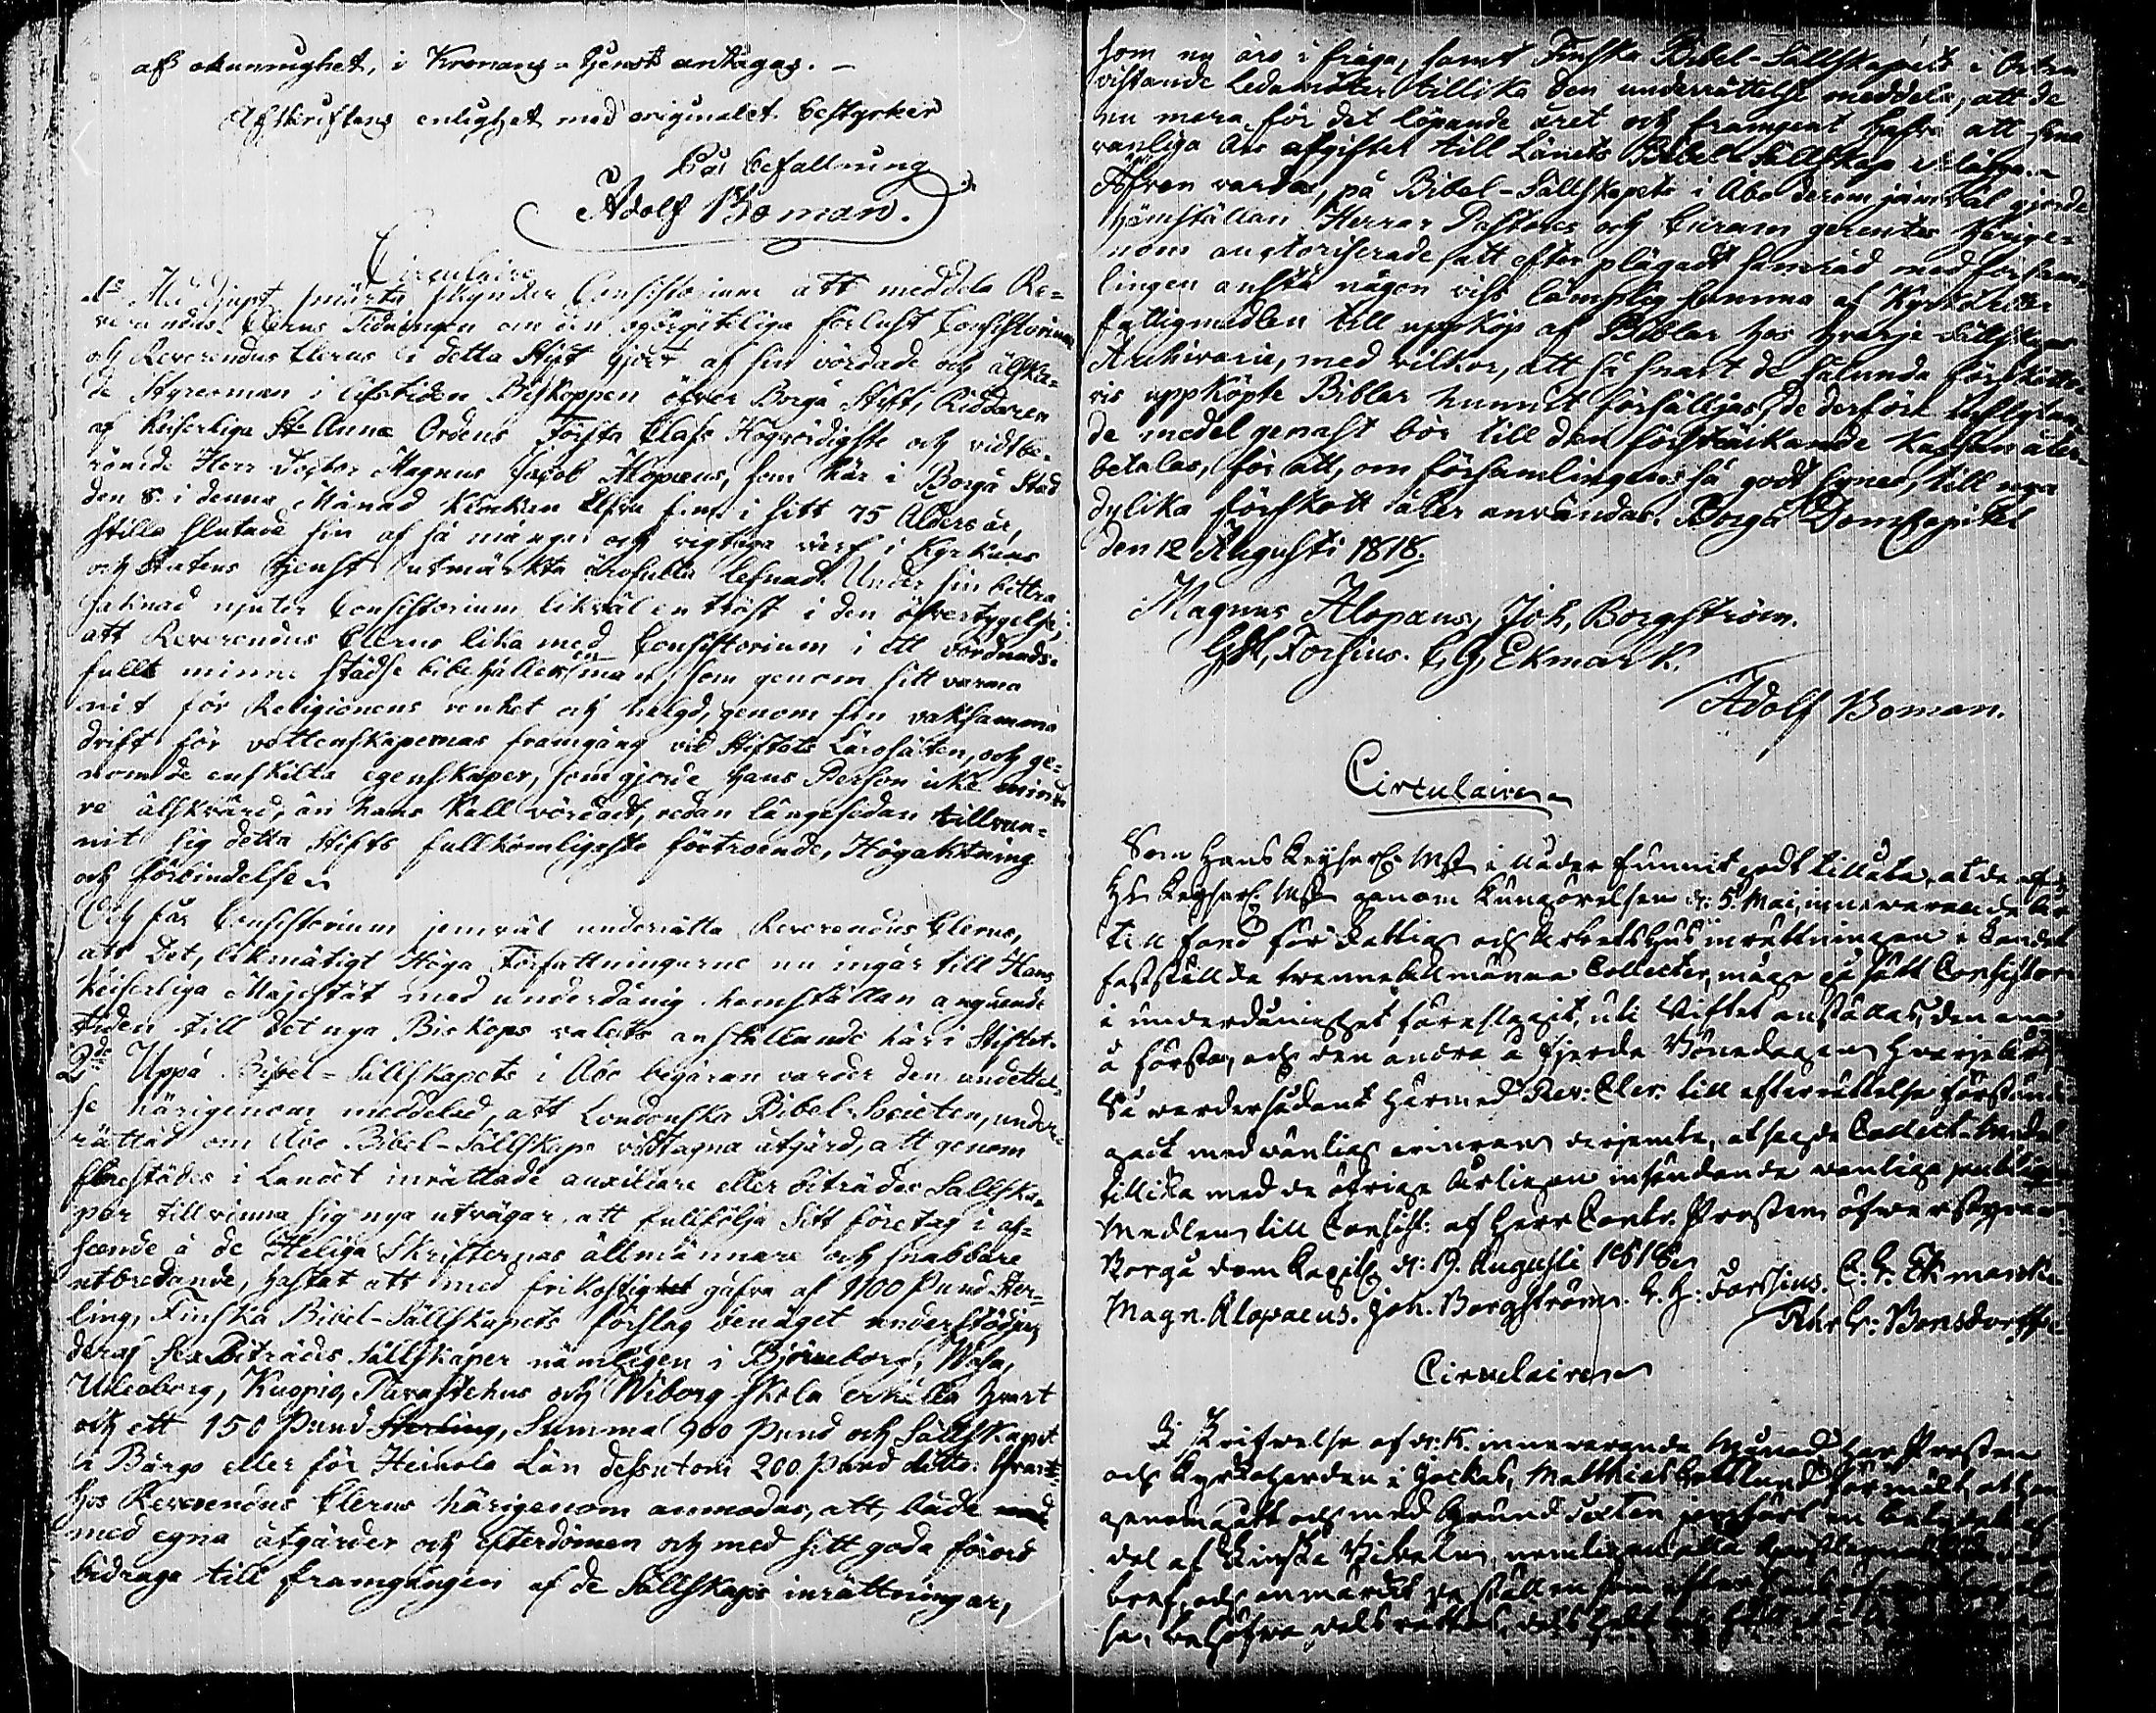 af okunnighet, i Kronans tjenst antagas. –
Afskriftens enlighet med originalet bestyrker
På befallning
Adolf Boman.
Circulaire
1o Med djupt smärta skyndar Consistorium att meddela Re=
verendus Clerus Tidningen om den oförgätliga förlust Consistorium
och Reverendus Clerus i detta Stift gjort af sin vördade och älska=
de Styresman i lifstiden Biskoppen öfver Borgå Stift, Riddaren
af Keiserliga Ste Annæ Ordens Första Class Högvördigste och vidtbe=
römde Herr Doctor Magnus Jacob Alopæus, som här i Borgå Stad
den 8. i denna Månad Klockan Elfva f.m. i sitt 75 Ålders år,
stilla slutade sin af så många och vigtiga värf i Kyrkans
och Statens tjenst utmärkta ärofulla lefnad. Under sin bittra
saknad njuter Consistorium likväl en tröst i den öfvertygelse,
att Reverendus Clerus lika med Consistorium i ett vördnads=
fullt minne städse bibehåller en man, som genom sitt varma
nit för Religionens renhet och helgd, genom sin vaksamma
drift för vettenskapernas framgång vid Stiftets Lärosäten, och ge=
nom de enskilta egenskaper, som gjorde hans Person icke mind=
re älskvärd, än hans Kall vördadt, redan längesedan tillvun=
nit sig detta Stifts fullkomligaste förtroende, Högaktning
och förbindelse.
Och får Consistorium jemväl underrätta Reverendus Clerus,
att Det, likmätigt Höga Författningarne nu ingår till Hans
Keiserliga Majestät med underdånig hemställan angående
tiden till det nya Biskops valets anställande här i Stiftet.
2do Uppå Bibel=Sällskapets i Åbo begäran varder den undettel=
se härigenom meddelad, att Londonska Bibel-Societen, under=
rättad om Åbo Bibel-Sällskaps vidtagna åtgärd, att genom
flerestädes i Landet inrättade auxiliäre eller biträdes Sällska=
per tillvinna sig nya utvägar, att fullfölja Sitt företag i af=
seende å de Heliga Skrifternas allmännare och snabbare
utbredande, hastat att med frikostighet gåfva af 1100 Pund Ster=
ling, Finska Bibel-Sällskapets förslag benäget understödja,
deraf sex Biträdes Sällskaper nämligen i Björneborg, Wasa,
Uleaborg, Kuopio, Tavastehus och Wiborg skola erhålla hvart
och ett 150 Pund Sterling, Summa 900 Pund och Sällskapet
i Bårgo eller för Heinola Län dessutom 200 Pund ditto: Hvart=
hos Reverendus Clerus härigenom anmodas, att, både med
med egna åtgärder och efterdömen och med sitt goda förord
bidraga till framgången af de Sällskaps inrättningar,
som nu äro i fråga, samt Finska Bibel-Sällskapets i Orten
vistande Ledamöter tillika den underrättelse meddela, att de
nu mera för det löpande året och framgent hafva att sina
vanliga års afgifter till Länets Bibel Sällskap erlägga.
Äfven varda, på Bibel-Sällskapets i Åbo derom jämväl gjorde
hemställan Herrar Pastores och Curam gerentes härige=
nom auctoriserade, att efter plägadt samråd med församm=
lingen anslå någon viss lämplig summa af Kyrko eller
fattigmedlen till uppköp af Biblar hos hvarje Sällskaps
Archivarie, med vilkor, att så snart de sålunda förskotts=
vis uppköpte Biblar hunnit försälljas, de derföre inflytan=
de medel genast bör till den förskäckande Kassan åter=
betalas, för att, om församlingen så godt synes, till nya
dylika förskott åter användas. Borgå Domkapitel
den 12 Augusti 1818.
Magnus Alopæus, Joh, Borgström.
G. H, Forsius. C, G, Ekmark.
Adolf Boman.
Circulaire
Som Hans Keyserl. Mst i Nåder funnit godt tillåta, at de af
Hs Keyserl. Mst genom Kungörelsen d: 5. Mai, innevarende År
till fond för Fattig och Arbetshus inrättningen i Landet
fastställda trenne Allmänna Collecter, måge på sätt Consistor.
i underdånighet föreslagit, uti Stiftet anställas, den ena
å första, och den andra å fjerde Bönedagen hvarje år,
så varder sådant härmed Rev: Cler. till efterrättelse förständ=
gadt med vänlig erinran derjemte, at sagde Collect=Medel
tillika med de öfriga årligen insändande vanliga publiqve
Medlen till Consist: af Herr Contr. Prosten öfversändes.
Borgå Dom Capitel d: 19. Augusti 1818.
Magn. Alopaeus. Joh. Borgström. G. H: Forsius. C. G: Ekmark.
Circulaire
I Skrifvelse af d: 15. innevarande Månad har Prosten
och Kyrkoherden i Jockas, Matthias förmält, at han
genomgått och med Grund Texten jemfört en betydlig
del af Finska Bibelen, nemligen alla
bref, och anmärkt de ställen som efter
se, behöfva dels rättas, dels